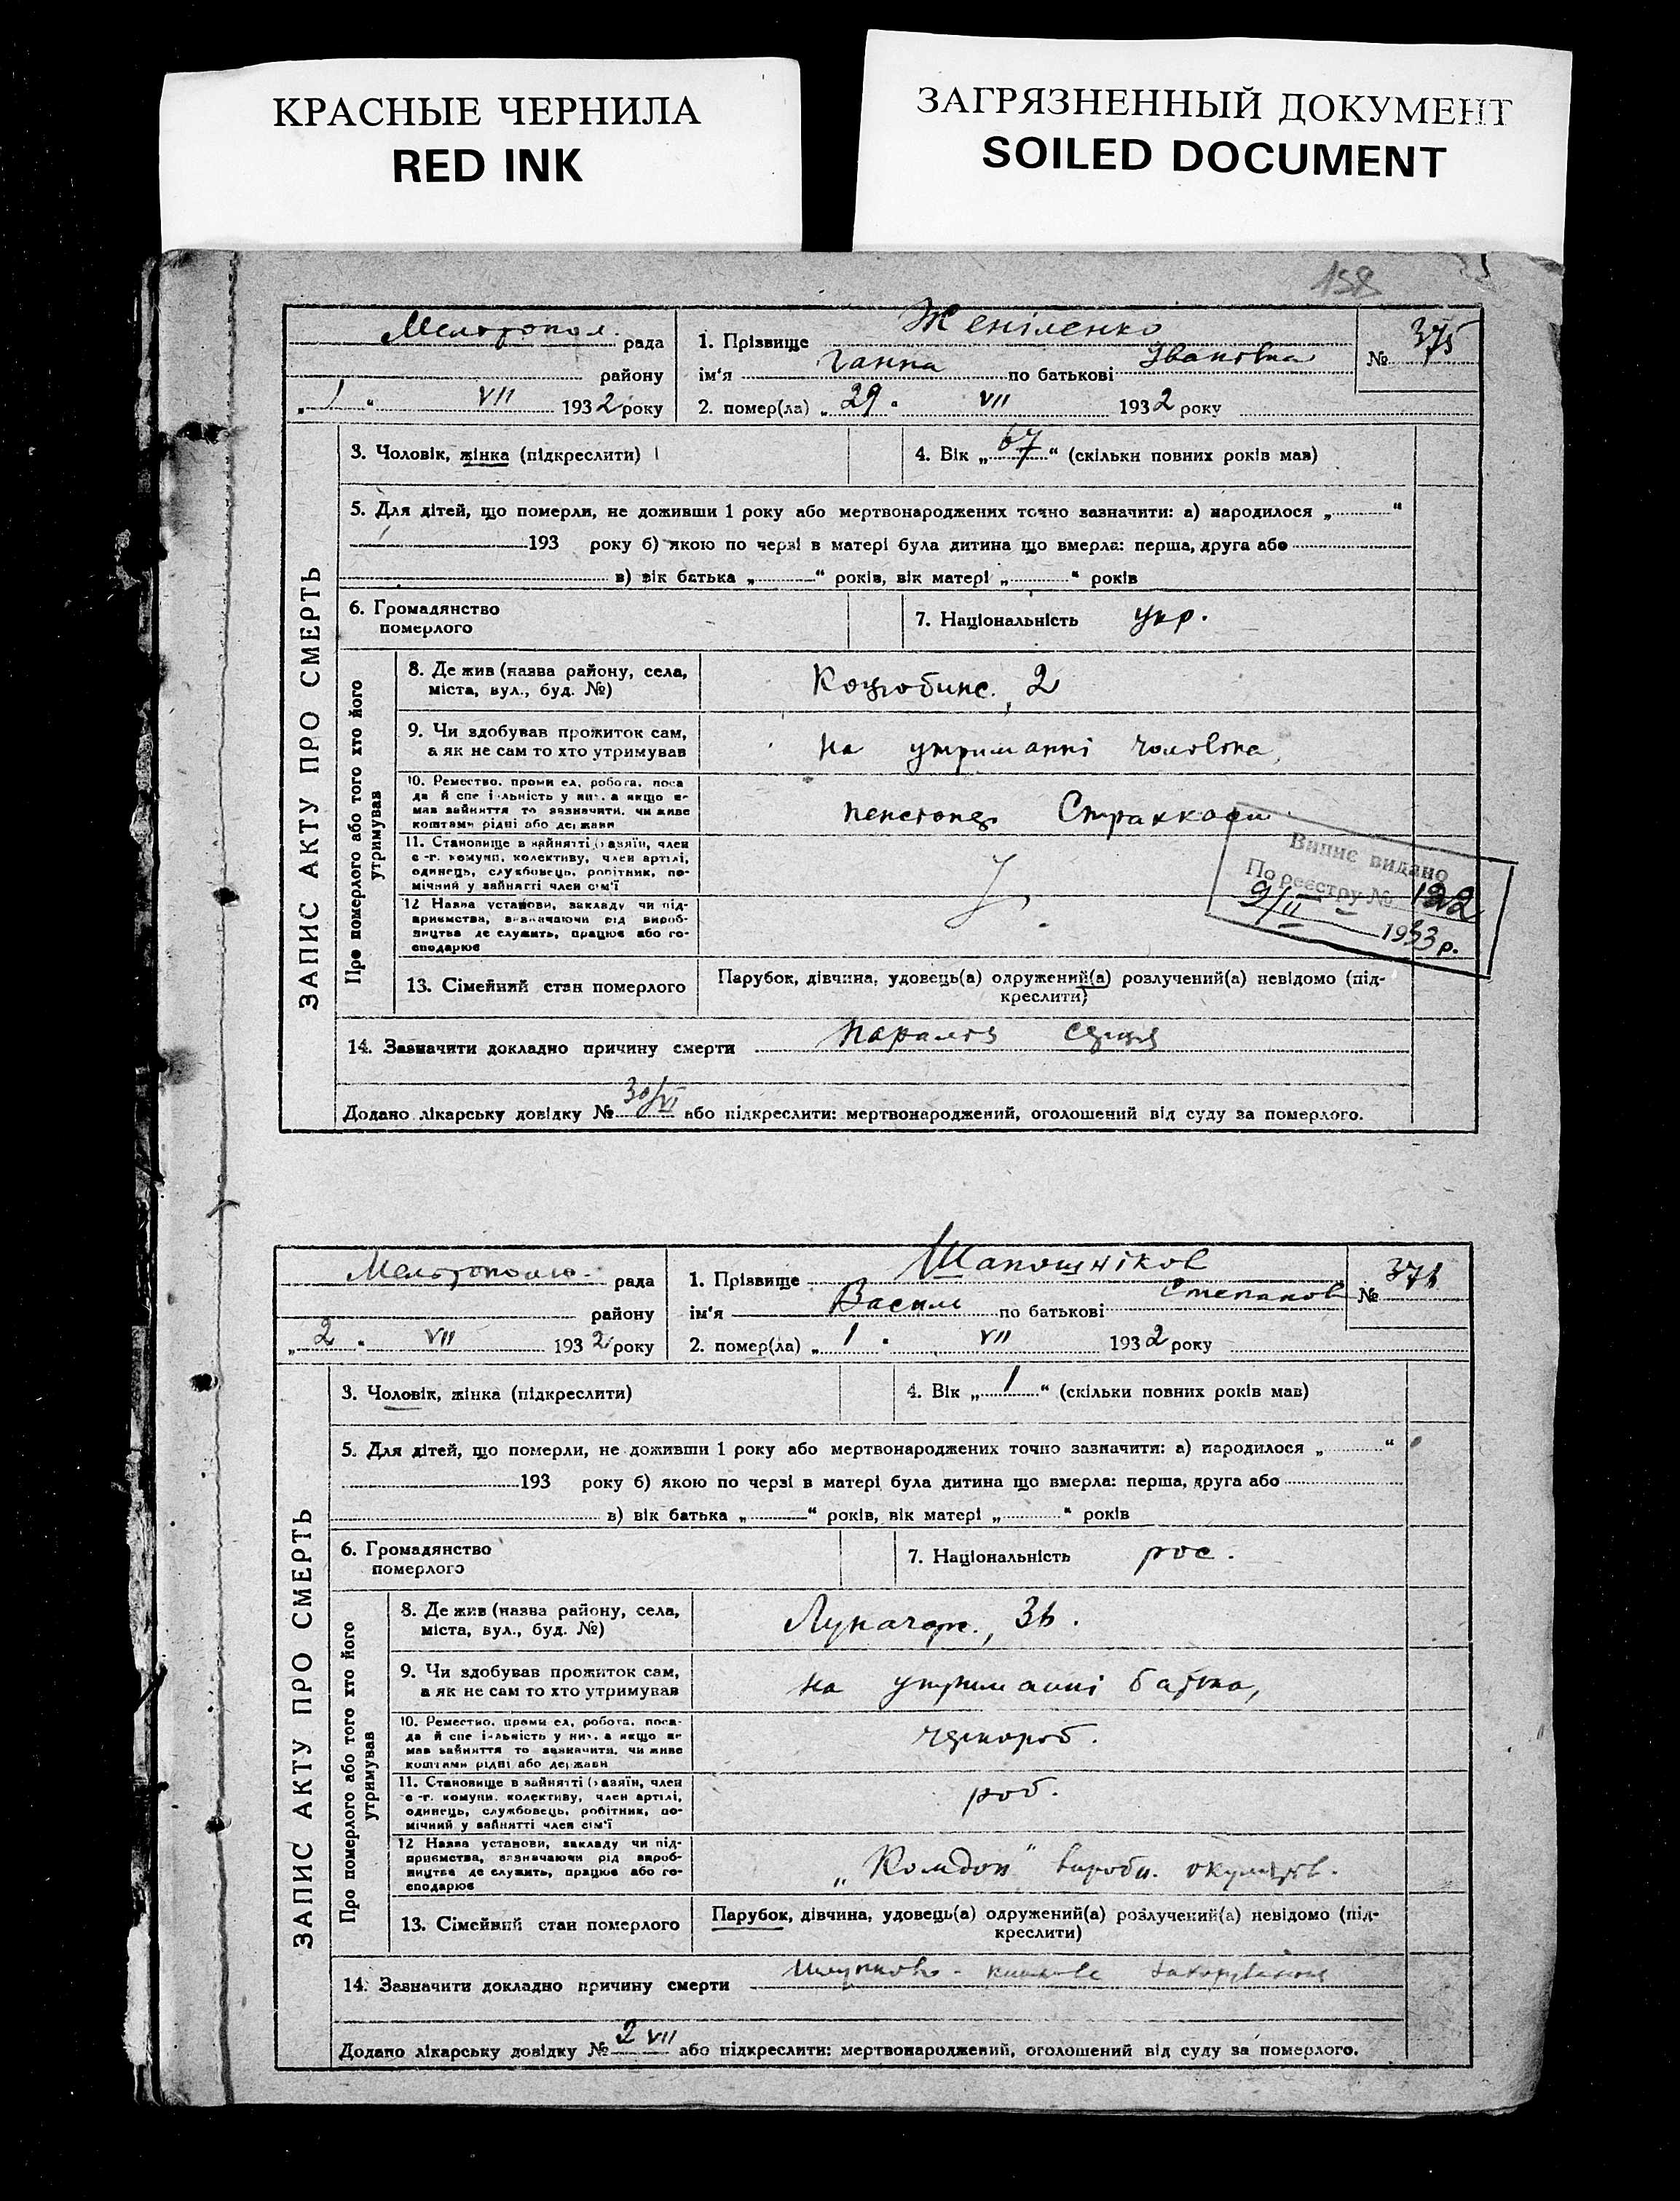 КРАСНЫЕ ЧЕРНИЛА
RED INK
ЗАГРЯЗНЕННЫЙ ДОКУМЕНТ
SOILED DOCUMENT
158
ЗАПИС АКТУ ПРО СМЕРТЬ
Мелітопол. рада
району
„1“ VII 1932 року
1. Прізвище Женіленко
ім'я Ганна по батькові Іванівна
№ 375
2. помер(ла) „29“ VII 1932 року
3. Чоловік, жінка (підкреслити)
4. Вік „67“ (скільки повних років мав)
5. Для дітей, що померли, не доживши 1 року або мертвонароджених точно зазначити: а) народилося „ “
193 року б) якою по черзі в матері була дитина що вмерла: перша, друга або
в) вік батька „ “ років, вік матері „ “ років
6. Громадянство
померлого
7. Національність укр.
Про померлого або того хто його
утримував
8. Де жив (назва району, села,
міста, вул., буд. №)
Коцюбинс. 2
9. Чи здобував прожиток сам,
а як не сам то хто утримував
на утриманні чоловіка,
10. Ремество, промисел, робота, поса-
да й спеціальність у них, а якщо не
мав зайняття то зазначити, чи живе
коштами рідні або держави
пенсіонер Страхкаси
11. Становище в зайнятті (хазяїн, член
с.-г. комуни, колективу, член артілі,
одинець, службовець, робітник, по-
мічний у зайнятті член сім'ї
12 Назва установи, закладу чи під-
приємства, визначаючи рід вироб-
ництва де служить, працює або го-
сподарює
Випис видано
По реєстру № 122
9/II 1933 р.
13. Сімейний стан померлого
Парубок, дівчина, удовець(а) одружений(а) розлучений(а) невідомо (під-
креслити)
14. Зазначити докладно причину смерти параліч серця
Додано лікарську довідку № 30/VI або підкреслити: мертвонароджений, оголошений від суду за померлого.
ЗАПИС АКТУ ПРО СМЕРТЬ
рада
району
„2“ VII 1932 року
1. Прізвище Шапошніков
ім'я Василь по батькові Степанов
№ 376
2. помер(ла) „1“ VII 1932 року
3. Чоловік, жінка (підкреслити)
4. Вік „1“ (скільки повних років мав)
5. Для дітей, що померли, не доживши 1 року або мертвонароджених точно зазначити: а) народилося „ “
193 року б) якою по черзі в матері була дитина що вмерла: перша, друга або
в) вік батька „ “ років, вік матері „ “ років
6. Громадянство
померлого
7. Національність рос.
Про померлого або того хто його
утримував
8. Де жив (назва району, села,
міста, вул., буд. №)
Луначарс., 36.
9. Чи здобував прожиток сам,
а як не сам то хто утримував
на утриманні батька,
10. Ремество, промисел, робота, поса-
да й спеціальність у них, а якщо не
мав зайняття то зазначити, чи живе
коштами рідні або держави
чорнороб.
11. Становище в зайнятті (хазяїн, член
с.-г. комуни, колективу, член артілі,
одинець, службовець, робітник, по-
мічний у зайнятті член сім'ї
роб.
12 Назва установи, закладу чи під-
приємства, визначаючи рід вироб-
ництва де служить, працює або го-
сподарює
13. Сімейний стан померлого
Парубок, дівчина, удовець(а) одружений(а) розлучений(а) невідомо (під-
креслити)
14. Зазначити докладно причину смерти шлунково-кишкове захорування
Додано лікарську довідку № 2 VII або підкреслити: мертвонароджений, оголошений від суду за померлого.